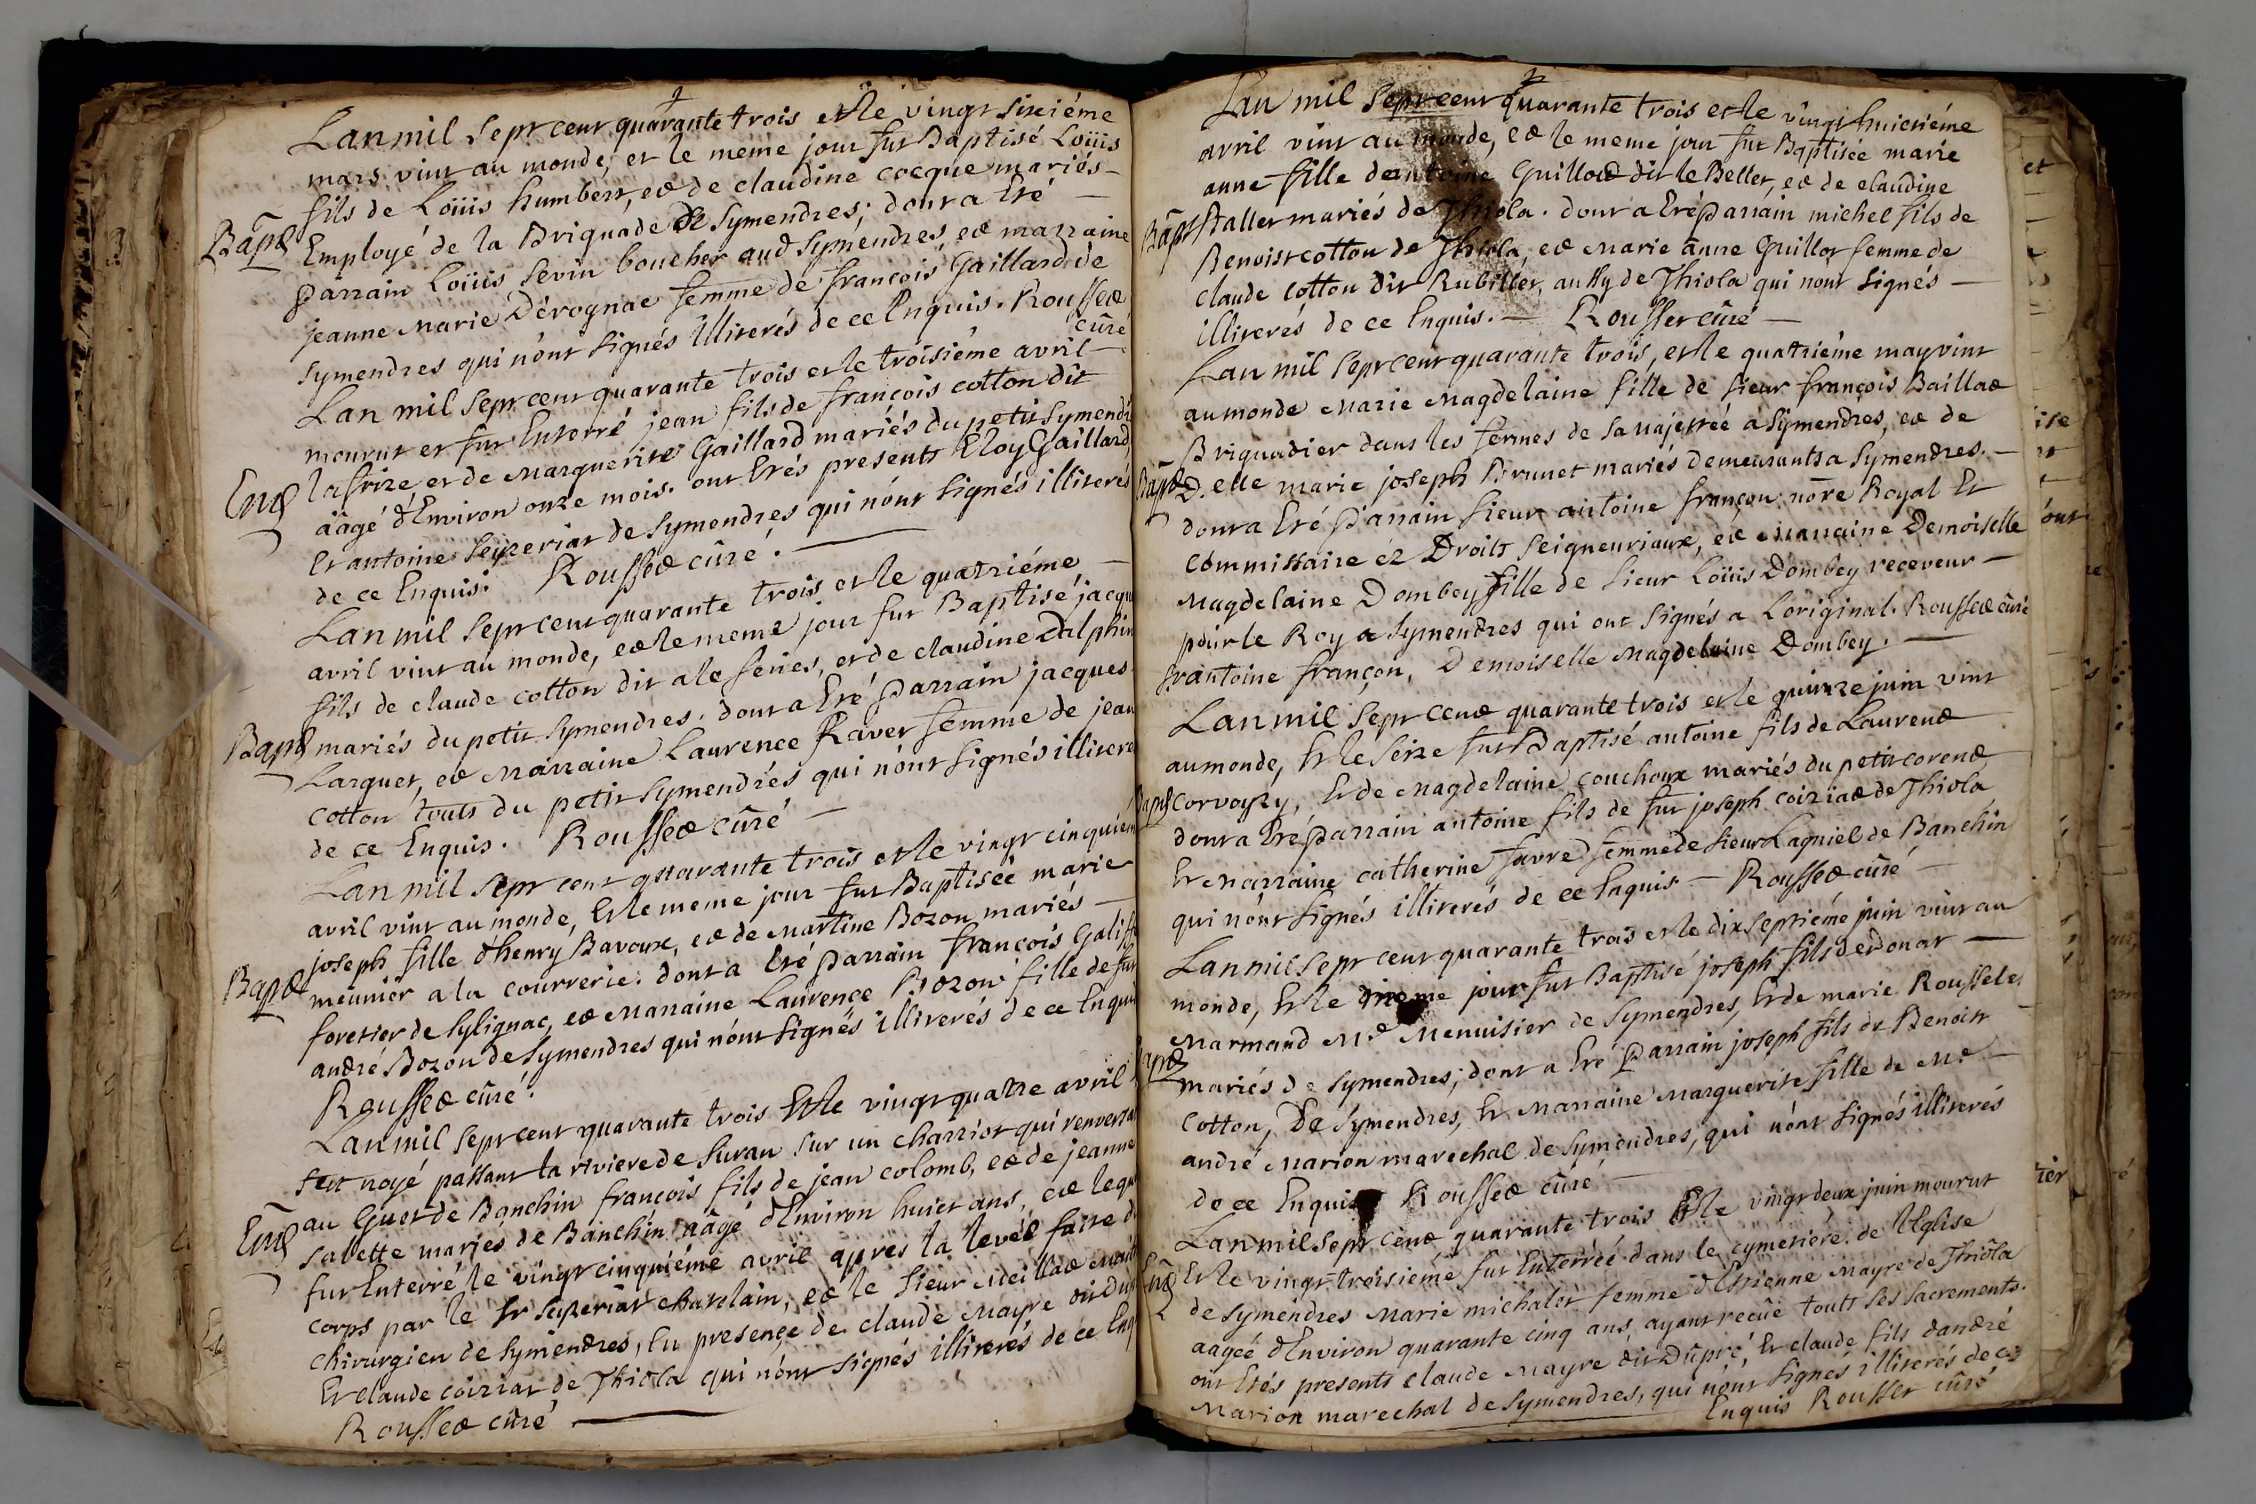 Lan mil sept cent quarante trois et le vingt sixiéme
mars vint au monde, et le meme jour fut Baptisé Loüis
fils de Loüis humbert, et de claudine cocque mariés
Bapt
Employé de la Briguade de Symendres; dont a Eté
parrain Loüis Sevin boucher aud Symendres, et marraine
jeanne Marie Dérognat femme de françois Gaillard de
Symendres qui n'ont signés illiterés de ce Enquis. Rousset
cûré
Lan mil sept cent quarante trois et le troisiéme avril
mourut et fut Enterré jean fils de françois cotton dit
Ent
lafrize et de Marguerite Gaillard mariés du petit Symendr
âagé d'Environ onze mois. ont Etés presents Eloy Gaillard,
Et antoine Seyzeriat de Symendres qui n'ont signés illiterés
de ce Enquis. Rousset cûré.
Lan mil sept cent quarante trois et le quatriéme
avril vint au monde, et le meme jour fut Baptisé jacqu
fils de claude cotton dit ale feries, et de claudine Dalphin
Bapt
mariés du petit Symendres. dont a Eté parrain jacques
Larguet, et Marraine Laurence Ravet femme de jean
Cotton touts du petit Symendres qui n'ont signés illitere
de ce Enquis. Rousset cûré
Lan mil sept cent quarante trois et le vingt cinquiem
avril vint au monde, Et le meme jour fut Baptisée marie
joseph fille d'henry Bavoux, et de Martine Bozon mariés
Bapt
meunier a la courrerie. dont a Eté parrain françois Galiff
foretier de Sylignac, et Marraine Laurence Bozon fille de fut
andré Bozon de Symendres qui n'ont signés illiterés de ce Enqui
Rousset cûré.
Lan mil sept cent quarante trois Et le vingt quatre avril
fut noyé passant la riviere de Suran sur un charriot qui renversa
au Guet de Banchin françois fils de jean colomb, et de jeanne
Ent
Savette mariés de Banchin âagé d'Environ huict ans, et leque
fut Enterré le vingt cinquiéme avril apres la levée faite d
corps par le Sr Seyzeriat chatelain, et le Sieur Meillat mait
chirurgien de Symendres, En presençe de claude Mayre dit Dup
Et claude coiriat de Thiola qui n'ont signés illiterés de ce Enq
Rousset cûré
Lan mil sept cent quarante trois et le vingt huictiéme
avril vint au monde, et le meme jour fut Baptisée marie
anne fille dantoine Guillot dit le Beller, et de claudine
Bapt
Staller mariés de Thiola. dont a Eté parrain michel fils de
Benoist cotton de Thiola, et Marie anne Guillot femme de
claude Cotton dit Rubiller, aussy de Thiola qui n'ont signés
illiterés de ce Enquis. Rousset cûré
Lan mil sept cent quarante trois, et le quatriéme may vint
au monde Marie Magdelaine fille de sieur françois Baillat
Briguadier dans les fermes de sa Majestée a Symendres, et de
Bapt
D.elle marie joseph Brunet mariés demeurants a Symendres.
dont a Eté Parrain sieur antoine françon nore Royal Et
Commissaire éz Droits Seigneuriaux, et Marraine Demoiselle
Magdelaine Dombey fille de sieur Loüis Dombey receveur
pour le Roy a Symendres qui ont signés a Loriginal. Rousset cûré
fr antoine françon, Demoiselle Magdelaine Dombey.
Lan mil sept cent quarante trois et le quinze juin vint
au monde, Et le seize fut Baptisé antoine fils de Laurent
Bapt
Corvoyzy, Et de Magdelaine couchoux mariés du petit corent
dont a Eté parrain antoine fils de fut joseph coiriat de Thiola
Et Marraine catherine favre femme de sieur Lagniel de Banchin
qui n'ont signés illiterés de ce Enquis Rousset cûré
Lan mil sept cent quarante trois et le dix septiéme juin vint au
monde, Et le meme jour fut Baptisé joseph fils d'edonar
Marmand Me Menuisier de Symendres, Et de marie Rousselet
Bapt
mariés de Symendres; dont a Eté Parrain joseph fils de Benoist
Cotton, de Symendres, Et Marraine Marguerite fille de Me
andré Marion marechal de Symendres, qui n'ont signés illiterés
de ce Enquis Rousset cûré
Lan mil sept cent quarante trois Et le vingt deux juin mourut
Ent
Et le vingt troisiéme fut Enterréé dans le cymetiere de l'Eglise
de Symendres Marie michalet femme d'Etienne Mayre de Thiola
aagéé d'Environ quarante cinq ans, ayant recüe touts ses sacrements.
ont Etés presents claude Mayre dit Dupré, Et claude fils dandré
Marion marechal de Symendres, qui n'ont signés illiterés de ce
Enquis Rousset cûré